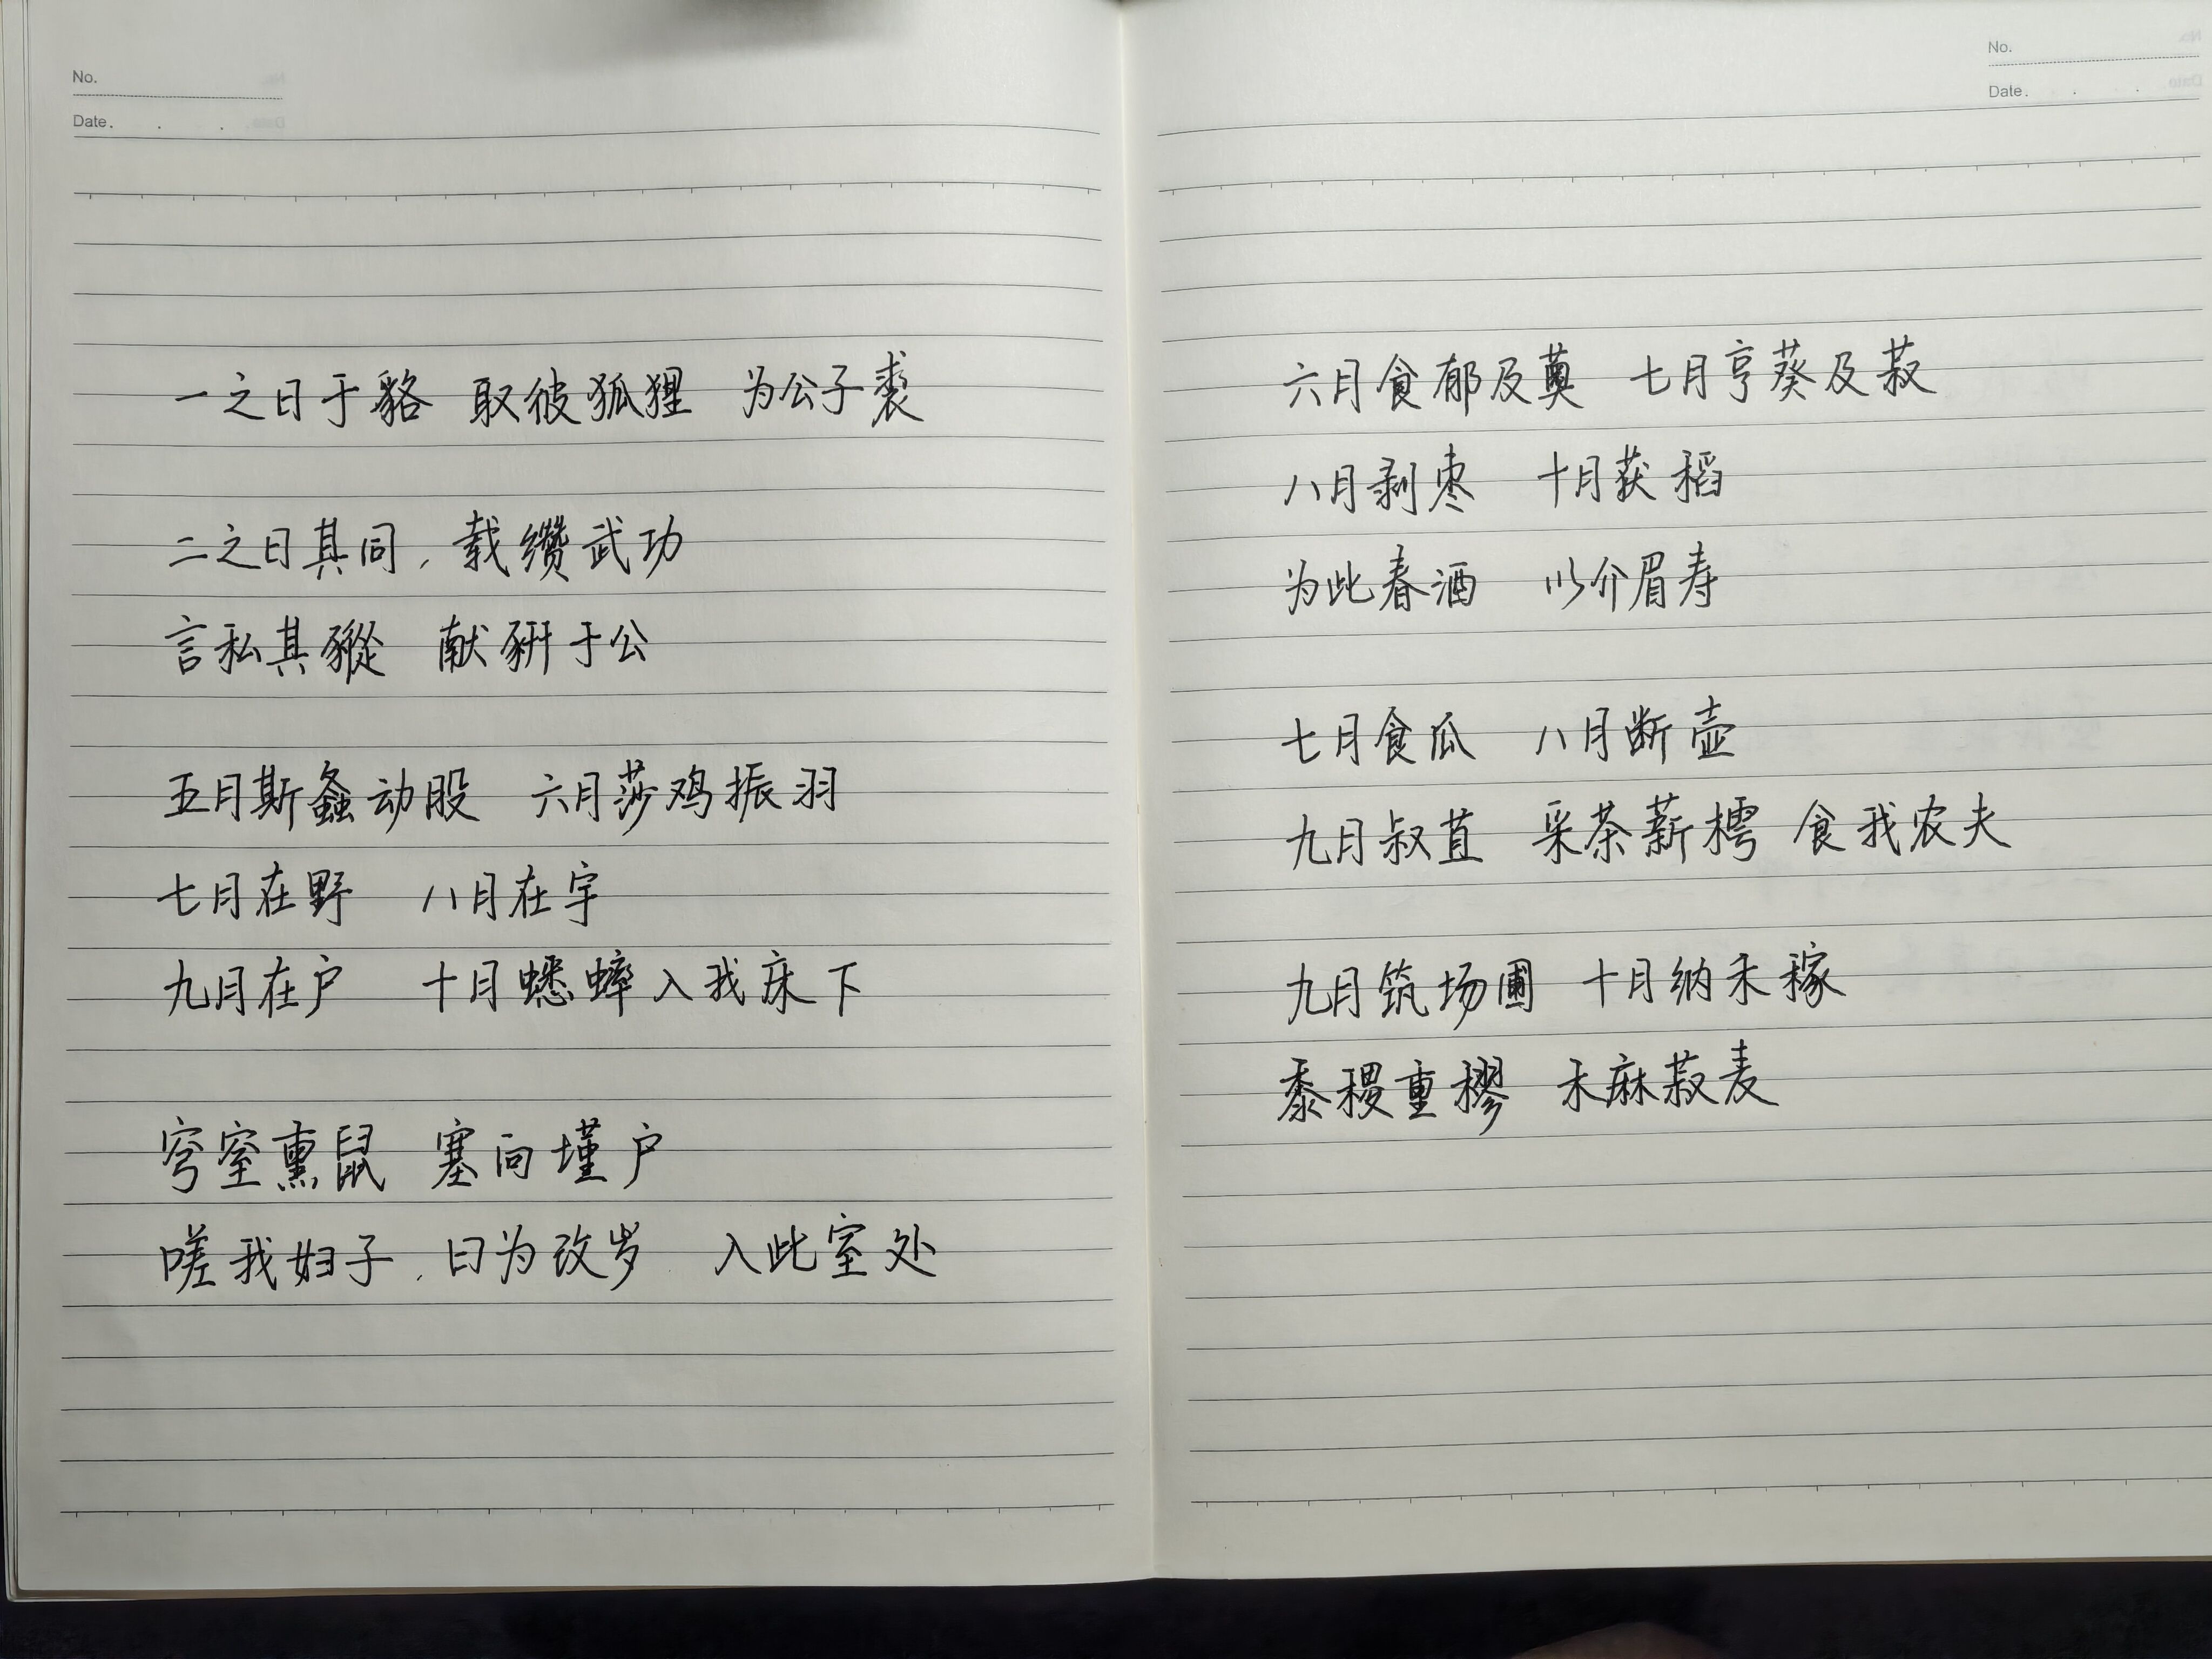 No.
Date.
一之日于貉 取彼狐狸 为公子裘
二之日其同，载缵武功
言私其豵 献豜于公
五月斯螽动股 六月莎鸡振羽
七月在野 八月在宇
九月在户 十月蟋蟀入我床下
穹窒熏鼠 塞向墐户
嗟我妇子，曰为改岁 入此室处
No.
Date.
六月食郁及薁 七月亨葵及菽
八月剥枣 十月获稻
为此春酒 以介眉寿
七月食瓜 八月断壶
九月叔苴 采荼薪樗 食我农夫
九月筑场圃 十月纳禾稼
黍稷重穋 禾麻菽麦